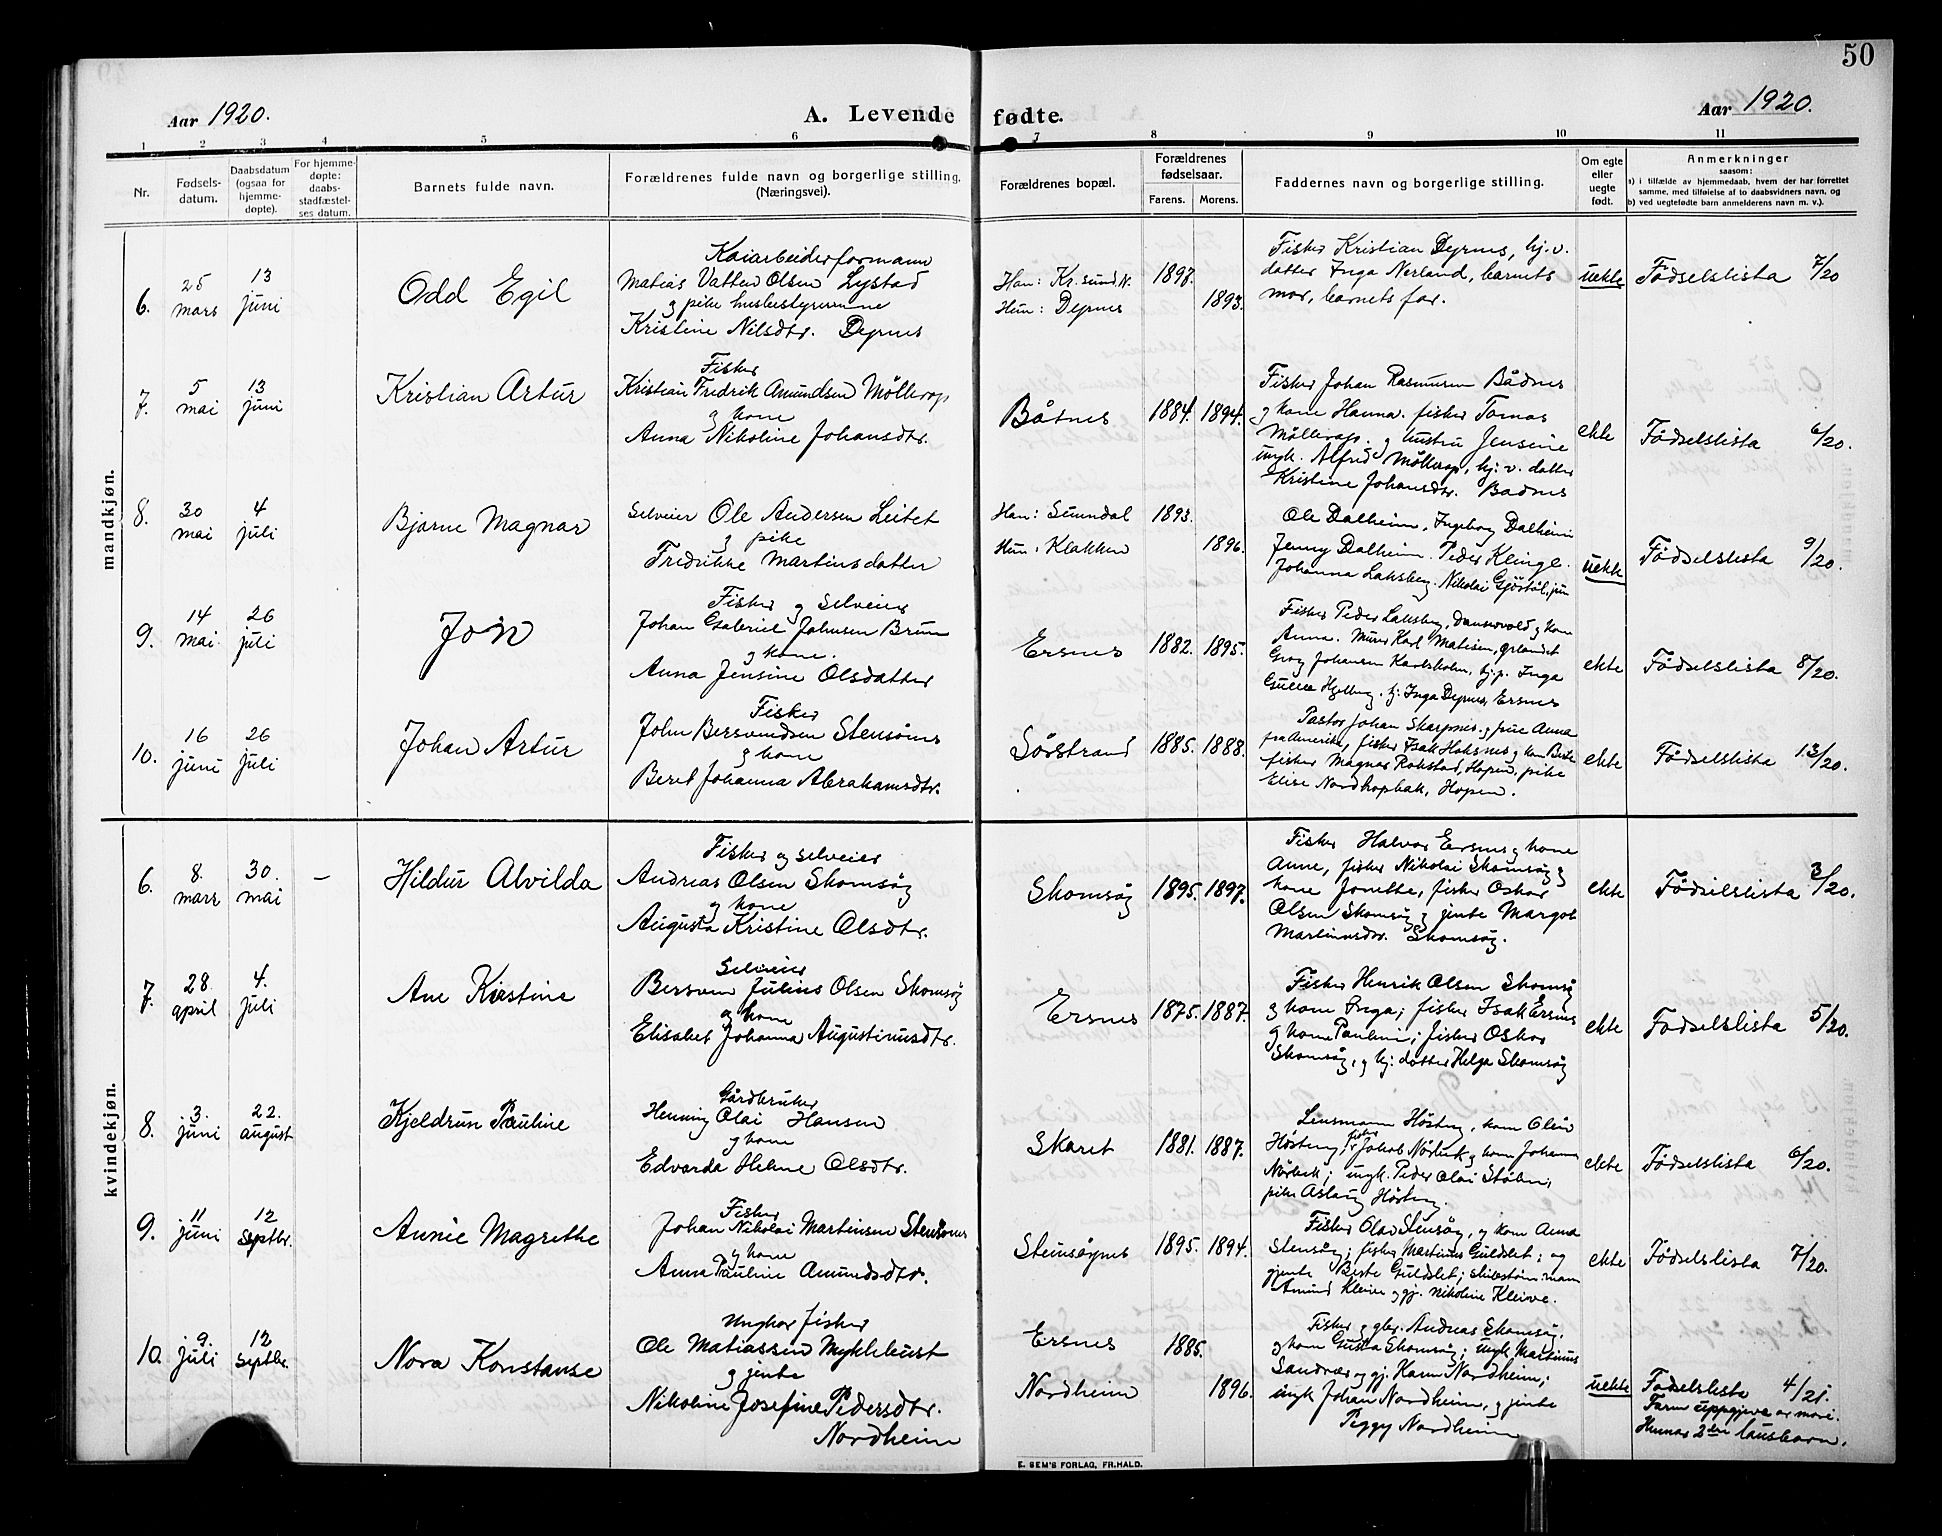 50
Aar 1920.
A. Levende fødte.
Aar 1920.
1 2 3 4 5 6 7 8 9 10 11
Nr.
Fødsels-
datum.
Daabsdatum
(ogsaa for
hjemme-
døpte).
For hjemme-
døpte:
daabs-
stadfæstel-
ses datum.
Barnets fulde navn.
Forældrenes fulde navn og borgerlige stilling.
(Næringsvei).
Forældrenes bopæl.
Forældrenes
fødselsaar.
Farens. Morens.
Faddernes navn og borgerlige stilling.
Om egte
eller
uegte
født.
Anmerkninger
saasom:
a) i tilfælde av hjemmedaab, hvem der har forrettet
samme, med tilføielse af to daabsvidners navn, og
b) ved uegtefødte barn anmelderens navn m. v.).
mandkjøn.
6.
25 mars
13 juni
Odd Egil
Kaiarbeiderformann
Matias Vatten Olsen Lystad
og pike husbestyrerinne
Kristine Nilsdtr. Dyrnes
Han: Kr.sund N.
Hun: Dyrnes
1893.
Fisker Kristian Dyrnes, hj.v.
datter Inga Nerland, barnets
mor, barnets far.
uekte
Fødselslista 7/20
7.
5 mai
13 juni
Kristian Artur
Fisker
Kristian Fredrik Amundsen Møllerop
og kone
Anna Nikoline Johansdtr.
Båtnes
1884. 1894.
Fisker Johan Rasmusen Bådnes
og kone Hanna. fisker Tomas
Møllerop. og hustru Jensine
ungk. Alfred Møllerop, hj. v. datter
Kristine Johansdtr. Badnes
ekte
Fødselslista 6/20.
8.
30 mai
4 juli
Bjarne Magnar
Selveier Ole Andersen Leitet
og pike
Fredrikke Martinusdatter
Han: Sunndal
Hun: Klakken
1893.
1896.
Ole Dalheim, Ingeborg Dalheim
Jenny Dalheim. Peder Klinge.
Johanna Laksberg. Nikolai
uekte
Fødselslista 9/20.
9.
14 mai
26 juli
Jon
Fisker og Selveier
Johan Gabriel Johnsen Brun
og kone.
Anna Jensine Olsdatter
Ersnes
1882. 1895.
Fisker Peder Laksberg, og kone
Anna. Murer Karl Matisen,
Johansen Karlsholm, hj.p. Inga
hj. Inga Dyrnes, Ersnes
ekte
Fødselslista 8/20.
10.
16 juni
26 juli
Johan Artur
Fisker
John Bersvendsen Stensønes
og kone
Beret Johanna Abrahamsdtr.
Sørstrand
1885. 1888.
Pastor Johan Skarpnes og frue Anna
fra Amerika, fisker Isak Haksnes og kone Berte
fisker Magnar Rokstad, Hopen, pike
Elise Nordhopbak, Hopen.
ekte
Fødselslista 13/20.
kvindekjøn.
6.
8. mars
30. mai
—
Hildur Alvilda
Fisker og selveier
Andreas Olsen Skomsøg
og kone
Augusta Kristine Olsdtr.
Skomsøg
1895. 1897.
Fisker Halvor Ersnes og kone
Anne, fisker Nikolai Skomsøg og
kone Jonette, fisker Oskar
Olsen Skomsøg og jente Margot
Martinusdtr. Skomsøg.
ekte
Fødselslista 3/20.
7.
28. april
4. juli
Ane Kirstine
Selveier
Bersven Julius Olsen Skomsøg
og kone
Elisabet Johanna Augustinusdtr.
Ersnes
1875. 1887.
Fisker Henrik Olsen Skomsøg
og kone Inga; fisker Isak Ersnes
og kone Pauline; fisker Oskar
Skomsøg, og hj: datter Helga Skomsøg
ekte
Fødselslista 5/20.
8.
3. juni
22. august
Kjeldrun Pauline
Gårdbruker
Henning Olai Hansen
og kone
Edvarda Helene Olsdtr.
Skaret
1881. 1887.
Lensmann Høsteng, kone Olein
Høsteng, fisker Jakob Nørbek og kone Johanna
Nørbek; ungk. Peder Olai Stølen,
pike Aslaug Høsteng.
ekte
Fødselslista 6/20.
9.
11 juni
12 septbr.
Annie Magrethe
Fisker
Johan Nikolai Martinsen Stensønes
og kone
Anna Pauline Amundsdtr.
Steinsøynes
1895. 1894.
Fisker Olav Stensøy, og kone Anna
Stensøy; fisker Martinus Guldslet; og
gjente Berte Guldslet;
Amund Kleive og gj. Nikoline Kleive.
ekte
Fødselslista 7/20.
10
9. juli
12 septbr.
Nora Konstanse
Ungkar fisker
Ole Matiassen Myklebust
og jente
Nikoline Josefine Pedersdtr.
Nordheim
Ersnes
Nordheim
1885.
1896.
Fisker og gbr. Andreas Skomsøg.
og kone Gusta Skomsøg; ungk Martinus
Sandnær og gj. Hanna Nordheim;
ungk Johan Nordheim, og jente
Peggy Nordheim
uekte
Fødselslista 4/21.
Faren uppgjeve av mori.
Hennar 2den lausbarn.
E. SEM'S FORLAG, FR.HALD.